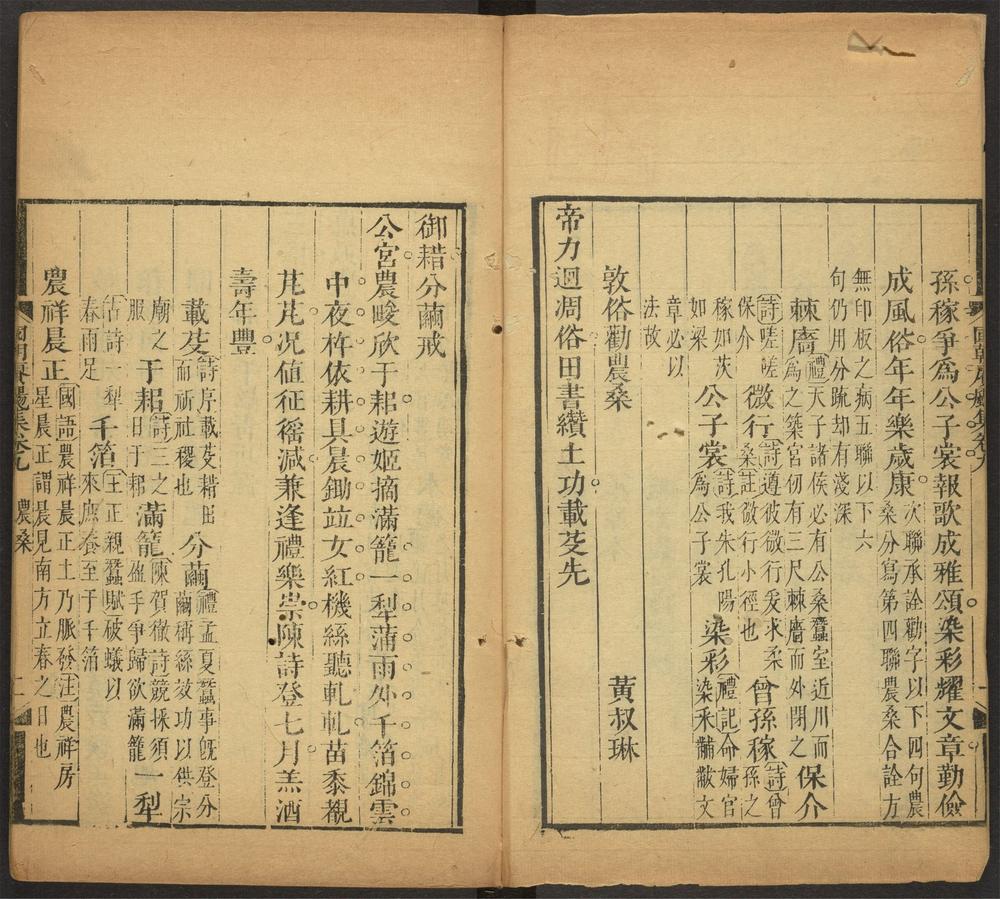 孫稼爭為公子裳報歌成雅頌染彩耀文章勤儉
成風俗年年樂歲康
次聯承詮勸字以下四句農
桑分寫第四聯農桑合詮方
無印板之病五聯以下六
句仍用分疏却有淺深
棘廧
禮天子諸侯必有公桑蠶室近川而
為之築宮仞有三尺棘廧而外閉之
保介
詩嗟嗟
保介
微行
詩遵彼微行爰求柔
桑註微行小徑也
曾孫稼
詩曾
孫之
稼如茨
如梁
公子裳
詩我朱孔陽
為公子裳
染彩
禮記命婦官
染采黼黻文
章必以
法故
敦俗勸農桑
黃叔琳
帝力迴凋俗田書纘土功載芟先
御耤分繭戒
公宮農畯欣于耜遊姬摘滿籠一犁蒲雨外千箔錦雲
中夜杵依耕具晨鋤竝女紅機絲聽軋軋苗黍覩
芃芃况值征徭減兼逢禮樂崇陳詩登七月羔酒
壽年豐
載芟
詩序載芟耤田
而祈社稷也
分繭
禮孟夏蠶事旣登分
繭稱絲效功以供宗
廟之
服
于耜
詩三之
日于耜
滿籠
陳賀徹詩競採須
盈手爭歸欲滿籠
一犁
古詩一犁
春雨足
千箔
王正親蠶賦破蟻以
來庶養至于千箔
農祥晨正
國語農祥晨正土乃脉發注農祥房
星晨正謂晨見南方立春之日也
卷九
農桑
二